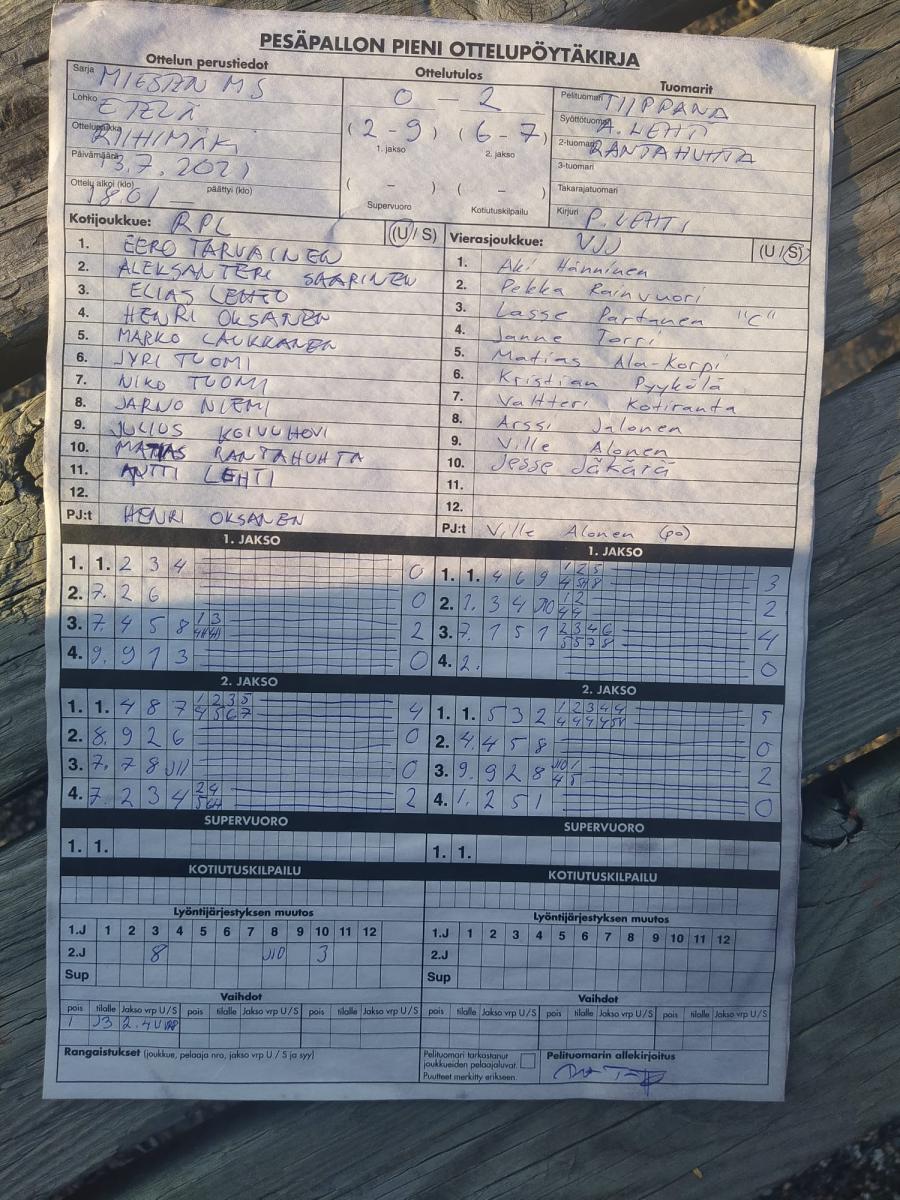 PESÄPALLON PIENI OTTELUPÖYTÄKIRJA
Ottelun perustiedot
Sarja MIESTEN MS
Lohko ETELÄ
Ottelupaikka RIIHIMÄKI
Päivämäärä 13.7.2021
Ottelu alkoi (klo) 18.01 päättyi (klo)
Ottelutulos
0 - 2
(2 - 9) (6 - 7)
1. jakso 2. jakso
( - ) ( - )
Supervuoro Kotiutuskilpailu
Tuomarit
Pelituomari TIIPPANA
Syöttötuomari A. LEHTI
2-tuomari RANTAHUHTA
3-tuomari
Takarajatuomari
Kirjuri P. LEHTI
Kotijoukkue: RPL (U / S)
1. EERO TARVAINEN
2. ALEKSANTERI SAARINEN
3. ELIAS LEHTO
4. HENRI OKSANEN
5. MARKO LAUKKANEN
6. JYRI TUOMI
7. NIKO TUOMI
8. JARNO NIEMI
9. JULIUS KOIVUHOVI
10. MATIAS RANTAHUHTA
11. ANTTI LEHTI
12.
PJ:t HENRI OKSANEN
Vierasjoukkue: (U / S)
1. Aki Hänninen
2. Pekka Rainvuori
3. Lasse Partanen "C"
4. Janne Torri
5. Matias Ala-Korpi
6. Kristian Pyykölä
7. Valtteri Kotiranta
8. Arssi Jalonen
9. Ville Alonen
10. Jesse Jäkärä
11.
12.
PJ:t Ville Alonen (po)
1. JAKSO
1. 1. 2 3 4 0
2. 7. 2 6 0
3. 7. 4 5 8 1 3 2
4. 9. 9 1 3 0
2. JAKSO
1. 1. 4 8 7 1 2 3 5 4
4 5 6 7
2. 8. 9 2 6 0
3. 7. 7 8 0
4. 7. 2 3 4 2 4 2
SUPERVUORO
1. 1.
KOTIUTUSKILPAILU
1. JAKSO
1. 1. 4 6 9 1 2 5 3
2. 1. 3 4 J10 1 2 2
4 4
3. 7. 1 5 1 2 3 4 6 4
5 5 7 8
4. 2. 0
2. JAKSO
1. 1. 5 3 2 1 2 3 4 4 5
2. 4. 4 5 8 0
3. 9. 9 2 8 J10 1 2
4 5
4. 1. 2 5 1 0
SUPERVUORO
1. 1.
KOTIUTUSKILPAILU
Lyöntijärjestyksen muutos
1.J 1 2 3 4 5 6 7 8 9 10 11 12
2.J 8 J10 3
Sup
Vaihdot
pois tilalle Jakso vrp U / S pois tilalle Jakso vrp U / S pois tilalle Jakso vrp U / S
1 J3 2. 4U
Rangaistukset (joukkue, pelaaja nro, jakso vrp U / S ja syy)
Lyöntijärjestyksen muutos
1.J 1 2 3 4 5 6 7 8 9 10 11 12
2.J
Sup
Vaihdot
pois tilalle Jakso vrp U / S pois tilalle Jakso vrp U / S pois tilalle Jakso vrp U / S
Pelituomari tarkastanut
joukkueiden pelaajaluvat.
Puutteet merkitty erikseen.
Pelituomarin allekirjoitus